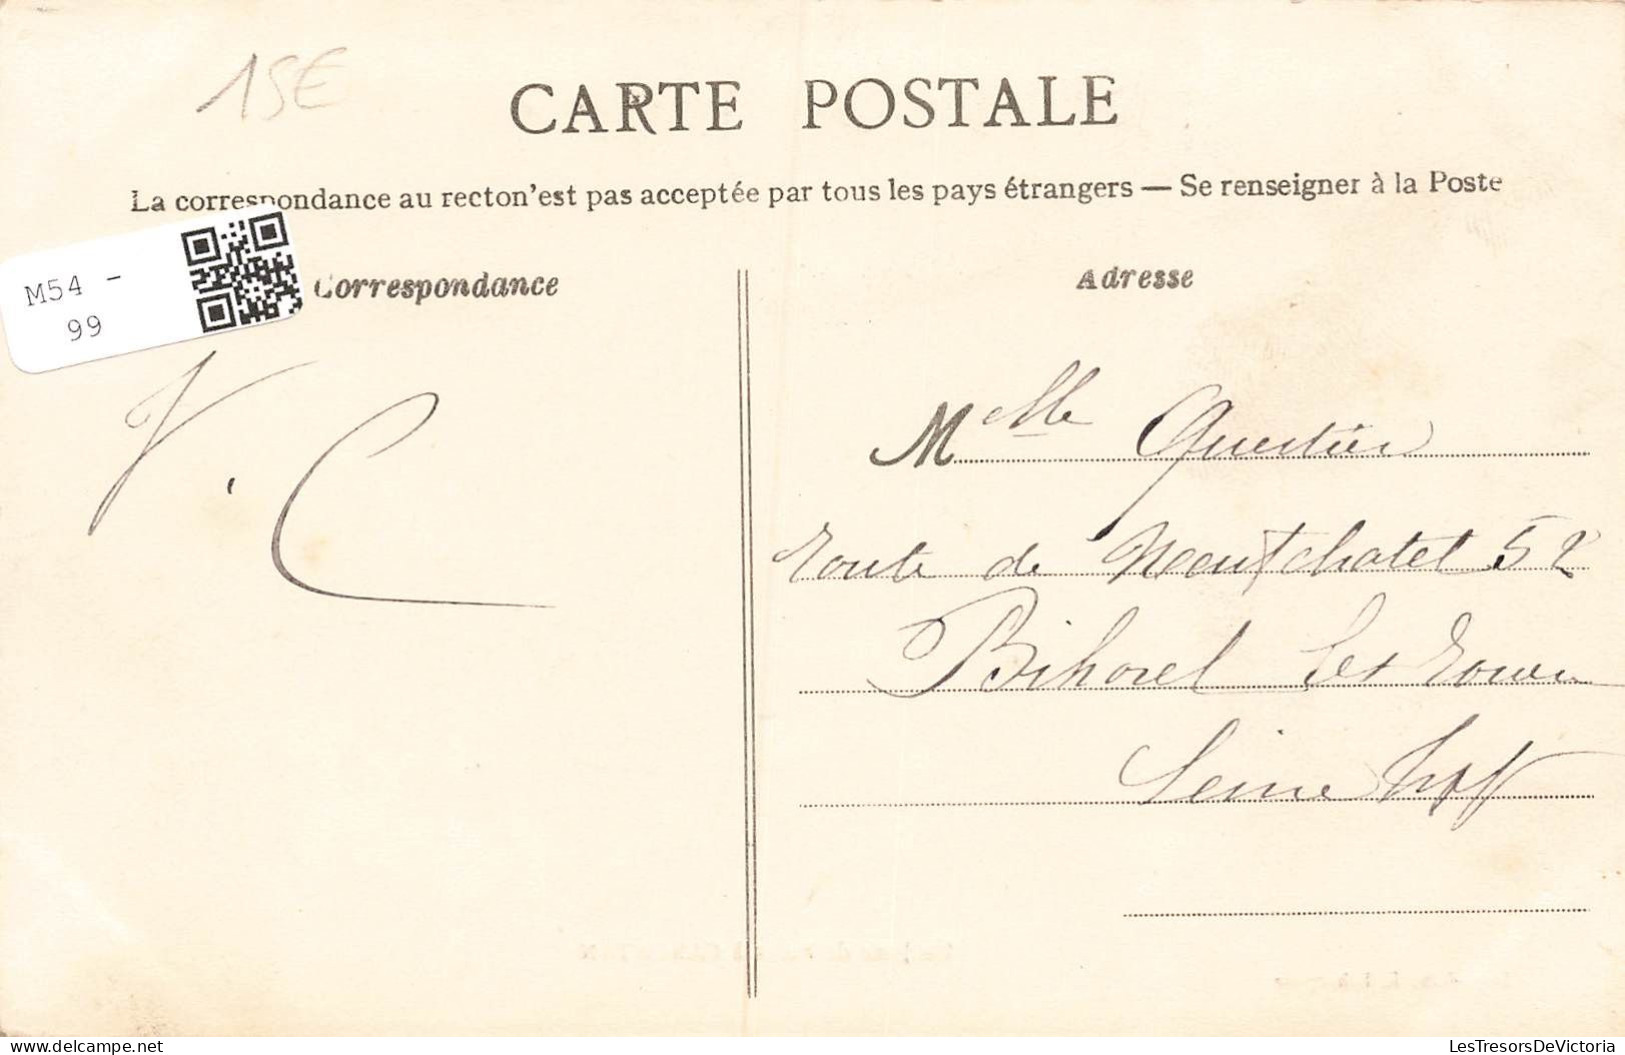 15€
CARTE POSTALE
La correspondance au recton'est pas acceptée par tous les pays étrangers — Se renseigner à la Poste
M54 -
99
Correspondance
Adresse
V. C
Mlle Questier
route de Neufchatel 52
Bihorel les Rouen
Seine Inf
LesTresorsDeVictoria
delcampe.net